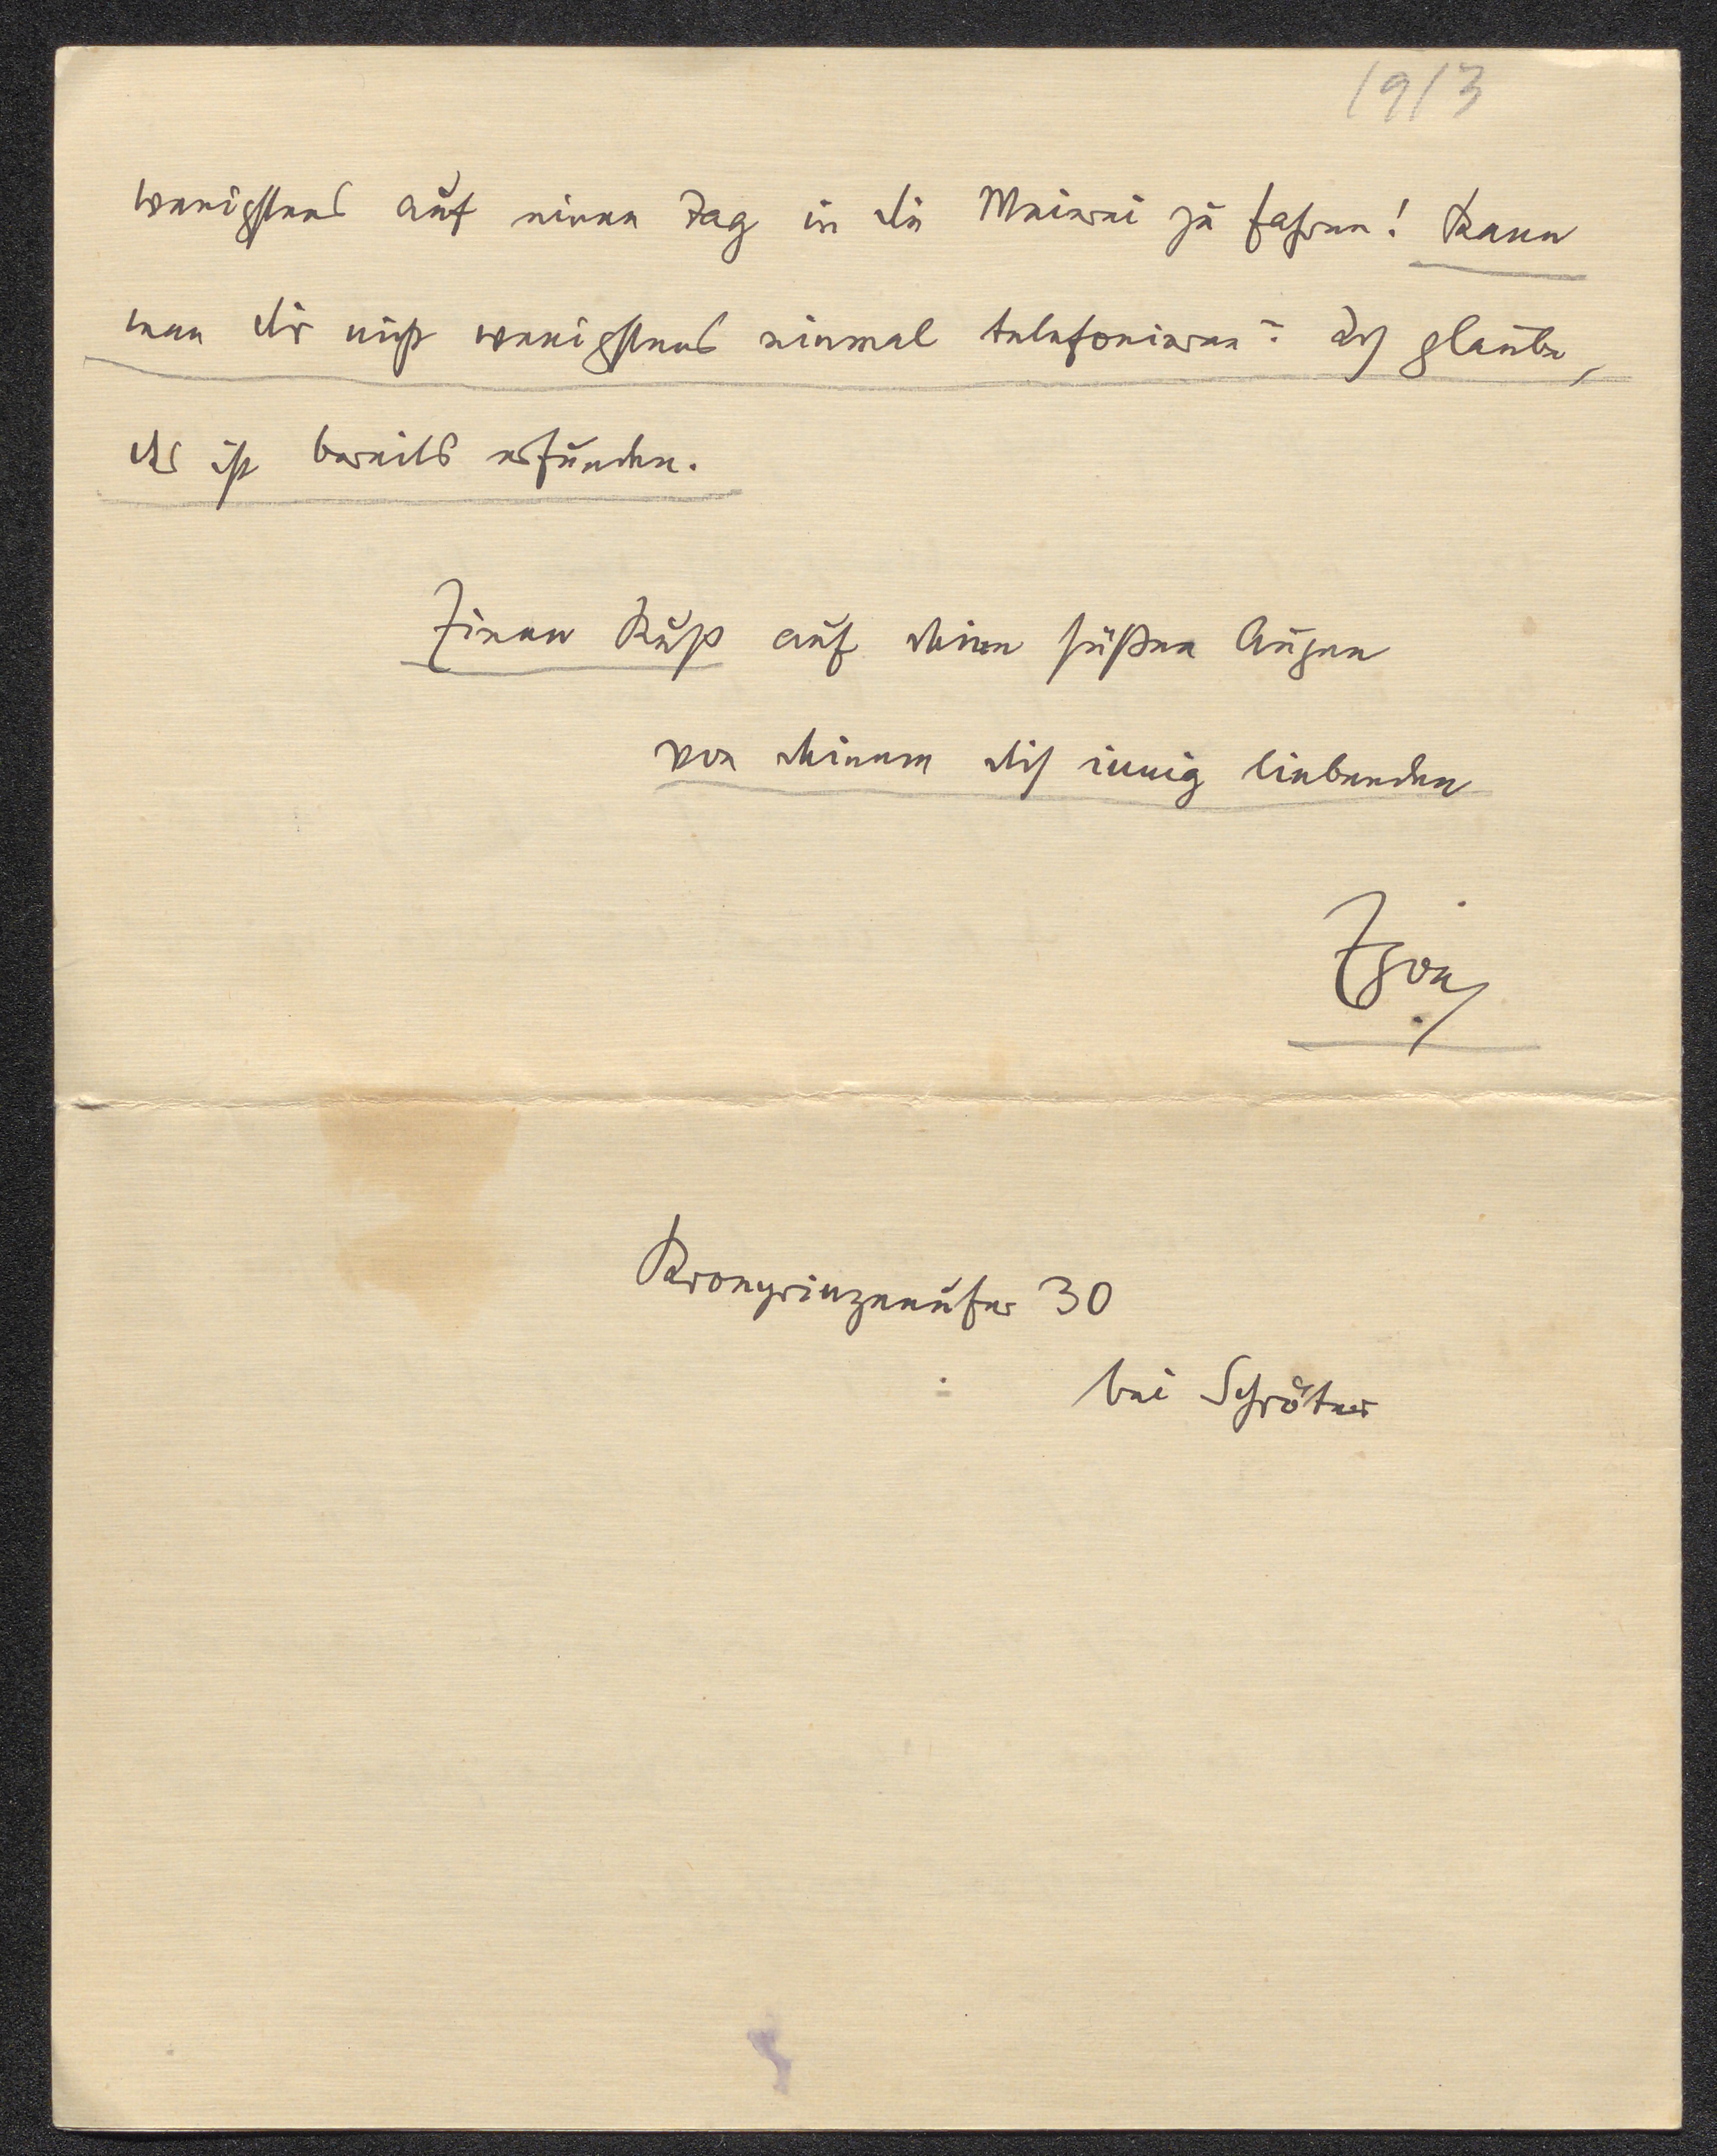 1913
wenigstens auf einen Tag in die Meierei zu fahren! Kann
man dir nicht wenigstens einmal telefonieren? Ich glaube,
das ist bereits erfunden.
Einen Kuß auf deine süßen Augen
von deinem dich innig liebenden
Egon
Kronprinzenufer 30
bei Schröter